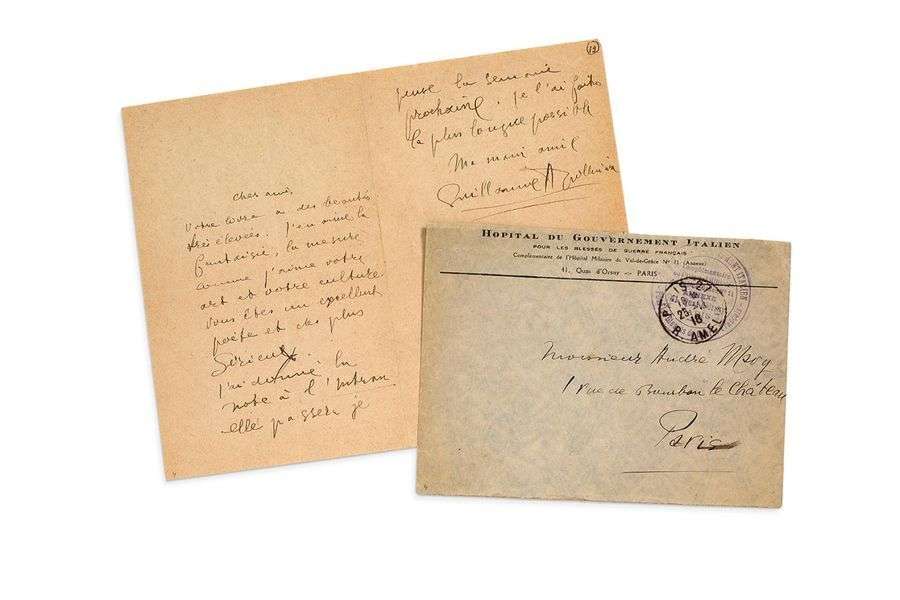 Cher ami,
Votre a des beautés
très élevées. J'en aime la
fantaisie, la mesure
comme j'aime votre
art et votre culture
vous êtes un excellent
poète et des plus
sérieux
J'ai donné la
note à l'Intran
elle passera je
pense la semaine
prochaine. Je l'ai faite
la plus longue possible
Ma main amie
Guillaume Apollinaire
12
HOPITAL DU GOUVERNEMENT ITALIEN
POUR LES BLESSÉS DE GUERRE FRANÇAIS
Complémentaire de l'Hôpital Militaire du Val-de-Grâce Nº 11 (Annexe)
41, Quai d'Orsay — PARIS
PARIS 27
R. AMEL
Monsieur André
1 rue de Bourbon le Château
Paris